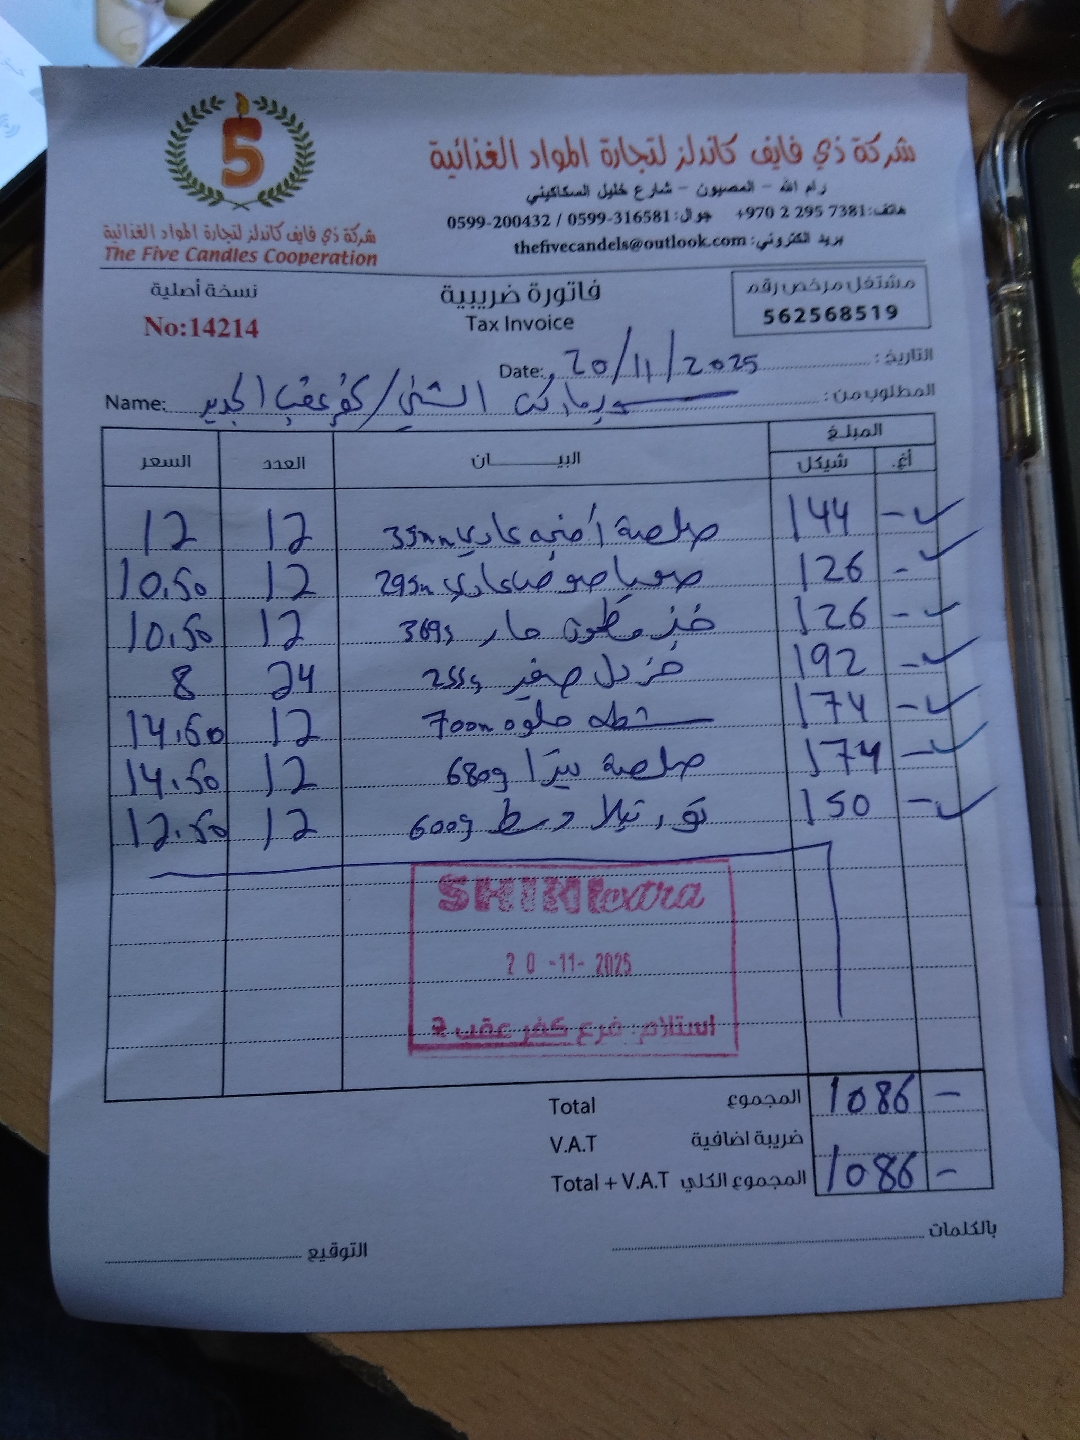 5
شركة ذي فايف كاندلز لتجارة المواد الغذائية
The Five Candles Cooperation
شركة ذي فايف كاندلز لتجارة المواد الغذائية
رام الله - المصيون - شارع خليل السكاكيني
هاتف: +970 2 295 7381 جوال: 0599-316581 / 0599-200432
بريد الكتروني: thefivecandels@outlook.com
نسخة أصلية
No:14214
فاتورة ضريبية
Tax Invoice
مشتغل مرخص رقم
562568519
التاريخ: Date: 20/11/2025
المطلوب من: سوبرماركت الشني/كفر عقب الجديد Name:
المبلغ
أغ. شيكل البيــــــان العدد السعر
- 144 صلصة عادي 12 12
- 126 عادي 12 10.50
- 126 خبز حار 369g 12 10.50
- 192 خردل صغير 255g 24 8
- 174 شطة حلوه 700m 12 14.50
- 174 صلصة بيتزا 680g 12 14.50
- 150 تورتيلا وسط 600g 12 12.50
SHINI extra
20 -11- 2025
استلام: فرع كفر عقب 7
المجموع Total 1086 -
ضريبة اضافية V.A.T
المجموع الكلي Total + V.A.T 1086 -
بالكلمات
التوقيع